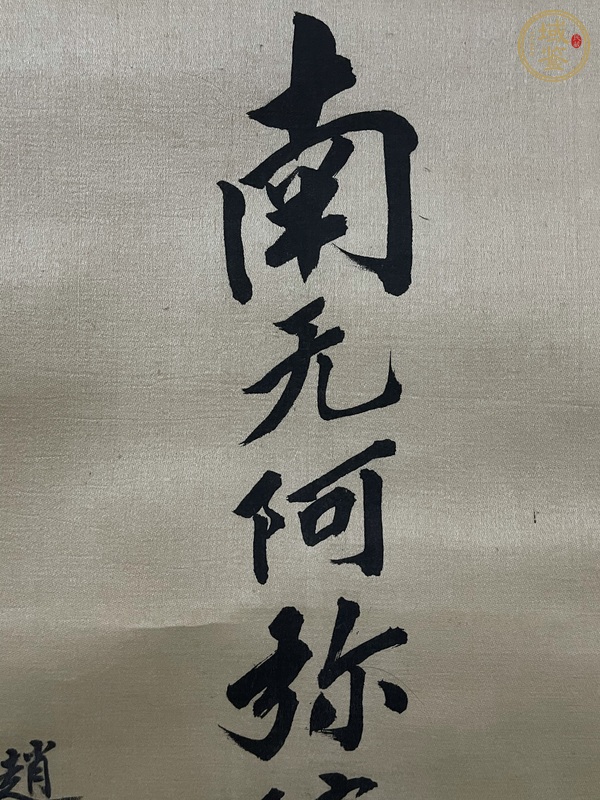 南无阿弥
趙